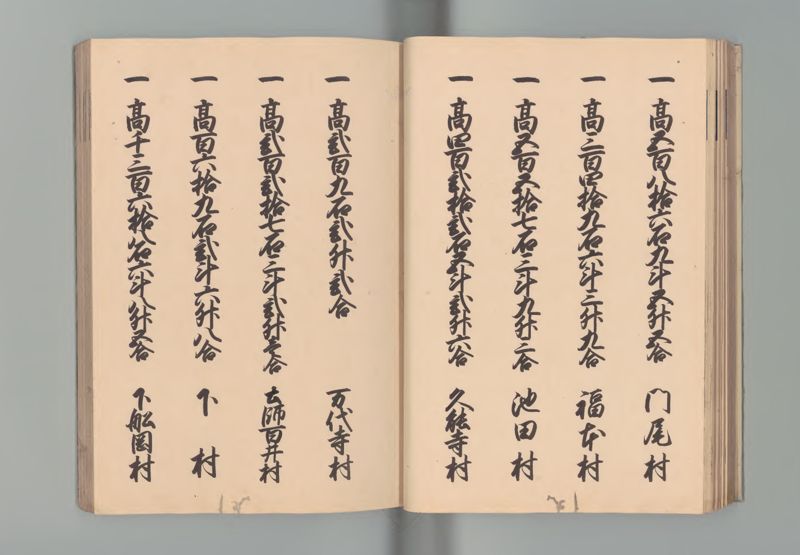 一 高五百八拾六石九斗五升五合 門尾村
一 高三百四拾九石六斗三升九合 福本村
一 高五百五拾七石三斗九升三合 池田村
一 高四百弐拾弐石五斗弐升六合 久能寺村
一 高弐百九石弐升弐合 万代寺村
一 高弐百弐拾七石三斗弐升壱合 土師百井村
一 高百六拾九石弐斗六升八合 下村
一 高千三百六拾八石六斗八升五合 下舩岡村